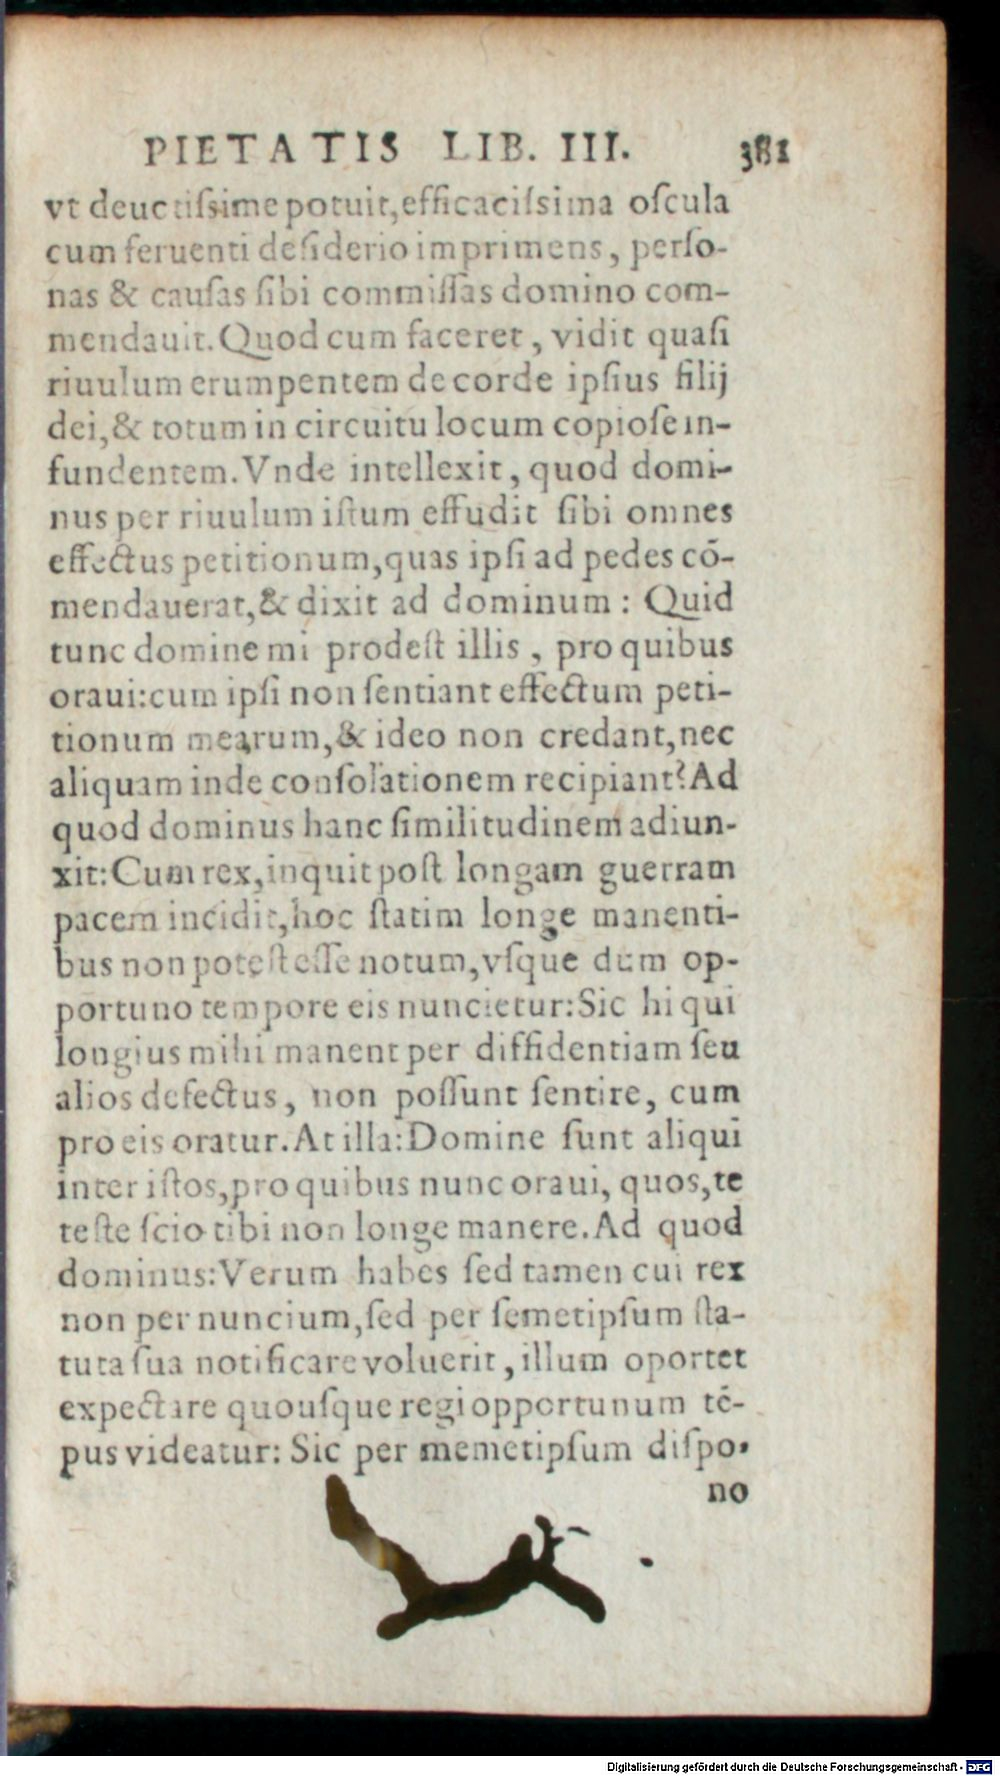 PIETATIS LIB. III. 381
vt deuotiſsime potuit,efficaciſsima oſcula
cum feruenti deſiderio imprimens, perſo-
nas & cauſas ſibi commiſſas domino com-
mendauit. Quod cum faceret, vidit quaſi
riuulum erumpentem de corde ipſius filij
dei,& totum in circuitu locum copioſe in-
fundentem. Vnde intellexit, quod domi-
nus per riuulum iſtum effudit ſibi omnes
effectus petitionum,quas ipſi ad pedes cõ-
mendauerat,& dixit ad dominum: Quid
tunc domine mi prodeſt illis, pro quibus
oraui:cum ipſi non ſentiant effectum peti-
tionum mearum,& ideo non credant,nec
aliquam inde conſolationem recipiant? Ad
quod dominus hanc ſimilitudinem adiun-
xit:Cum rex,inquit poſt longam guerram
pacem incidit,hoc ſtatim longe manenti-
bus non poteſt eſſe notum,vſque dum op-
portuno tempore eis nuncietur:Sic hi qui
longius mihi manent per diffidentiam ſeu
alios defectus, non poſſunt ſentire, cum
pro eis oratur. At illa:Domine ſunt aliqui
inter iſtos,pro quibus nunc oraui, quos,te
teſte ſcio tibi non longe manere. Ad quod
dominus:Verum habes ſed tamen cui rex
non per nuncium,ſed per ſemetipſum ſta-
tuta ſua notificare voluerit, illum oportet
expectare quouſque regi opportunum tẽ-
pus videatur: Sic per memetipſum diſpo-
no
Digitalisierung gefördert durch die Deutsche Forschungsgemeinschaft - DFG